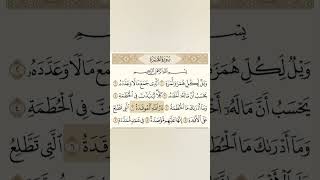 بِسْمِ
سُورَةُ الهُمَزَةِ
بِسْمِ ٱللَّهِ ٱلرَّحْمَٰنِ ٱلرَّحِيمِ
وَيْلٌ لِّكُلِّ هُمَزَةٍ لُّمَزَةٍ ١ ٱلَّذِى جَمَعَ مَالًا وَعَدَّدَهُۥ ٢
يَحْسَبُ أَنَّ مَالَهُۥٓ أَخْلَدَهُۥ ٣ كَلَّا لَيُنۢبَذَنَّ فِى ٱلْحُطَمَةِ ٤
وَمَآ أَدْرَىٰكَ مَا ٱلْحُطَمَةُ ٥ نَارُ ٱللَّهِ ٱلْمُوقَدَةُ ٦ ٱلَّتِى تَطَّلِعُ
عَلَى ٱلْأَفْـِٔدَةِ ٧ إِنَّهَا عَلَيْهِم مُّؤْصَدَةٌ ٨ فِى عَمَدٍ مُّمَدَّدَةٍ ٩
وَيْلٌ لِّكُلِّ هُمَزَةٍ مَالًا وَعَدَّدَهُۥ ٢
يَحْسَبُ أَنَّ مَالَهُۥٓ فِى ٱلْحُطَمَةِ ٤
وَمَآ أَدْرَىٰكَ مَا قَدَةُ ٦ ٱلَّتِى تَطَّلِعُ